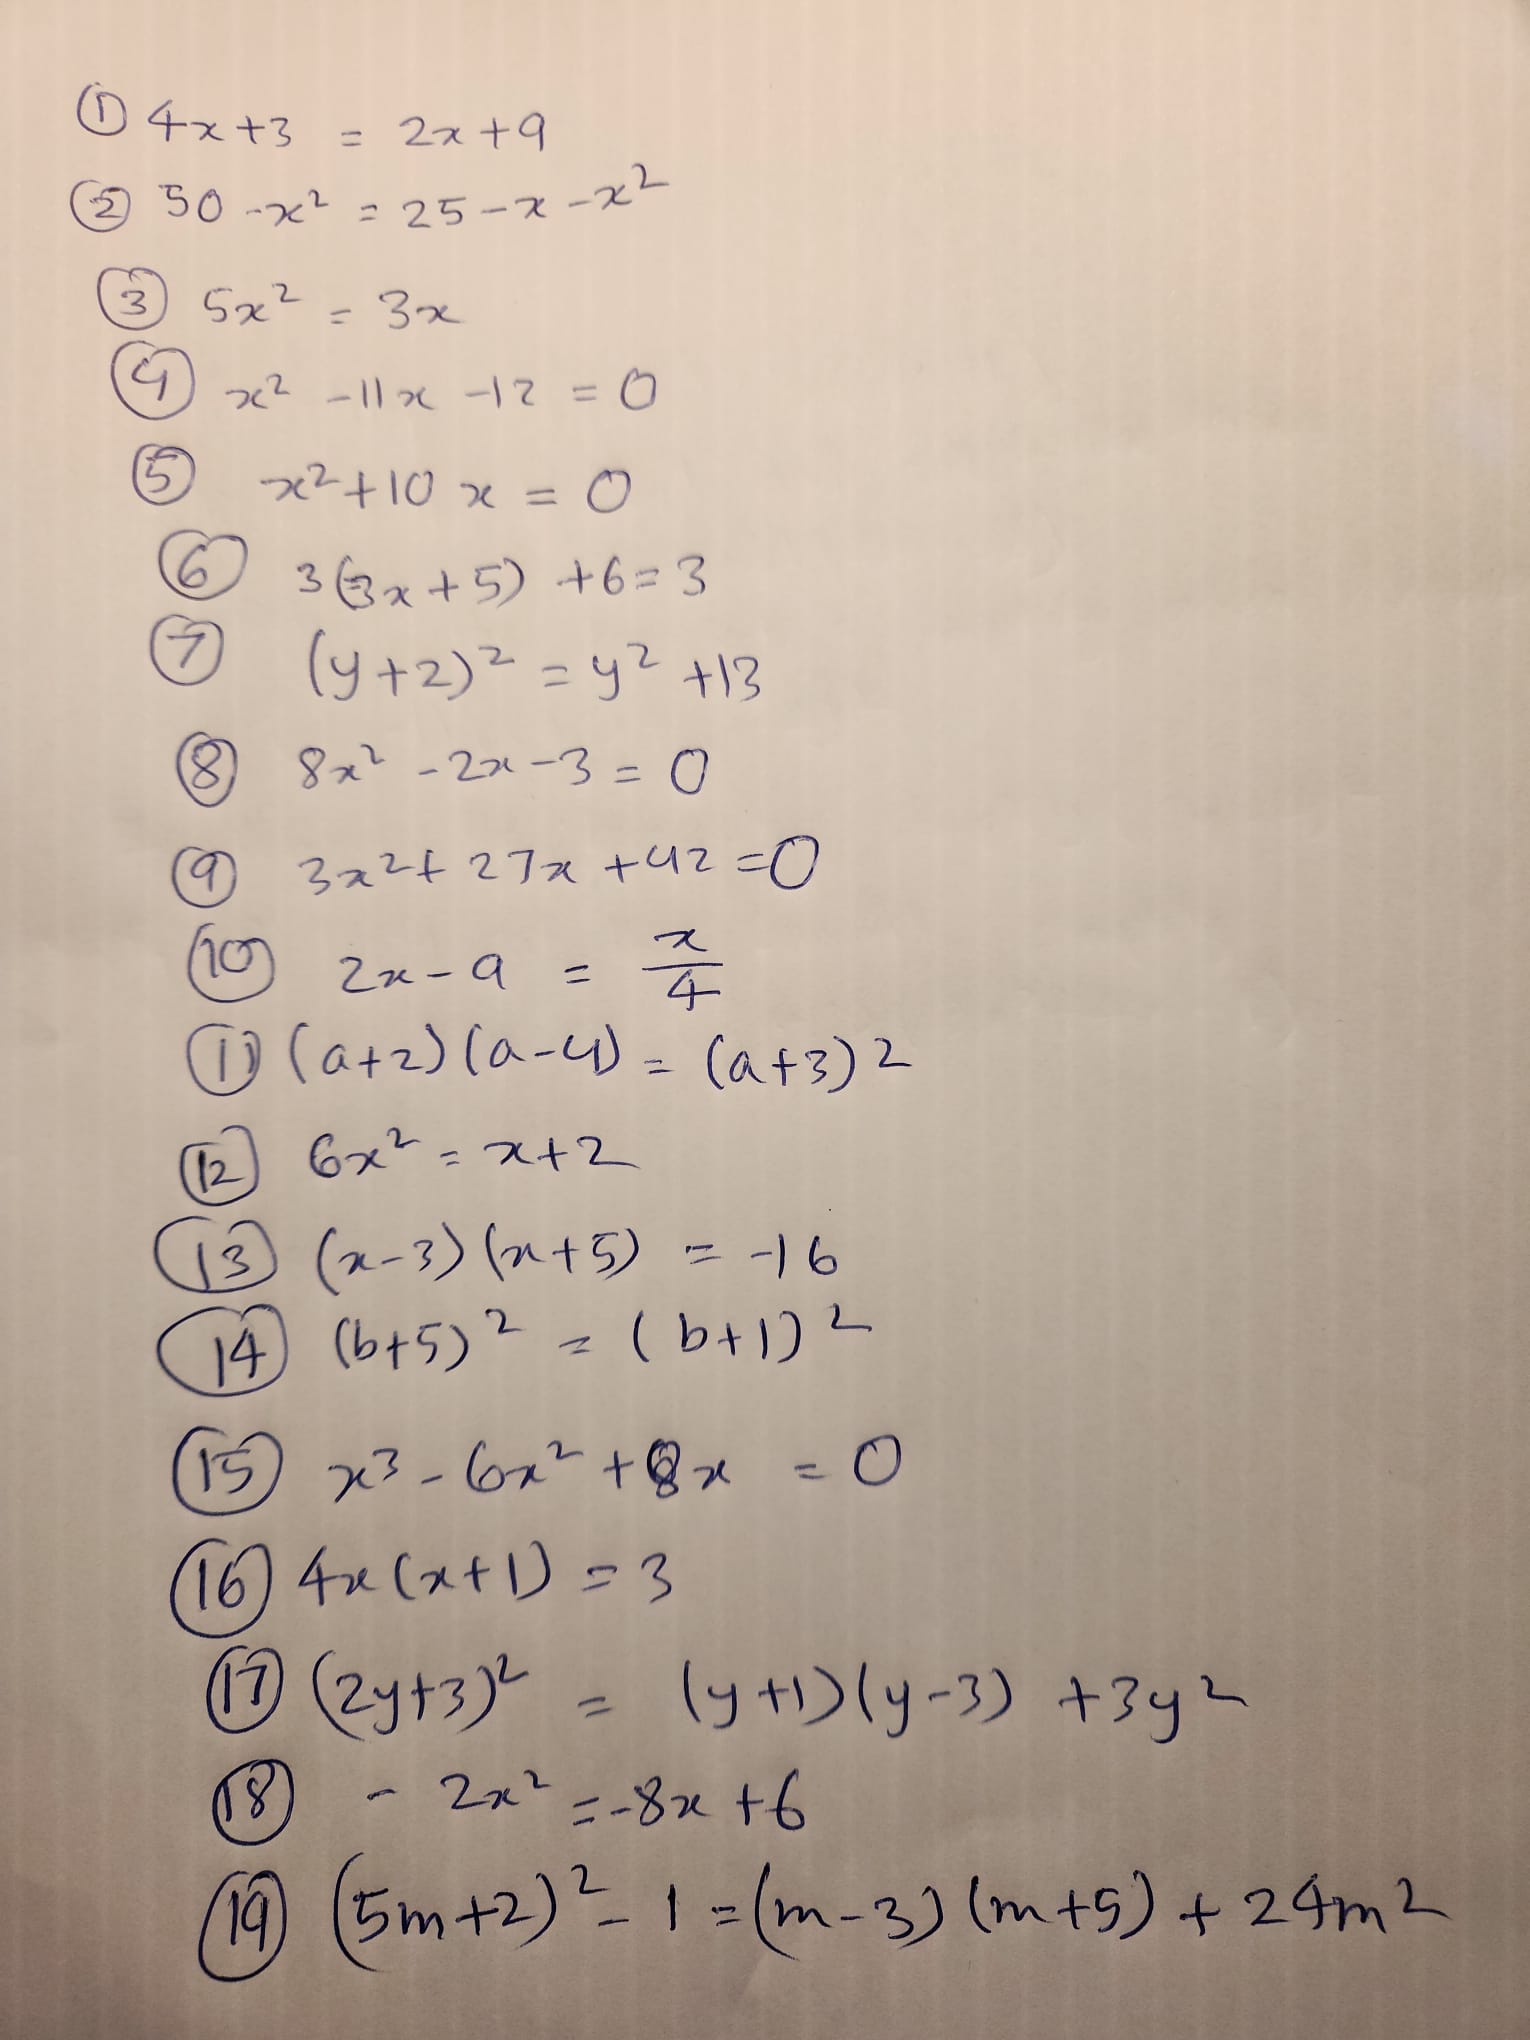 ① 4x+3 = 2x+9
② 50-x² = 25-x-x²
③ 5x² = 3x
④ x²-11x-12 = 0
⑤ x²+10x = 0
⑥ 3(3x+5)+6=3
⑦ (y+2)² = y²+13
⑧ 8x²-2x-3 = 0
⑨ 3x²+27x+42=0
⑩ 2x-9 = x/4
⑪ (a+2)(a-4) = (a+3)2
⑫ 6x² = x+2
⑬ (x-3)(x+5) = -16
⑭ (b+5)² = (b+1)²
⑮ x³-6x²+8x = 0
⑯ 4x(x+1) = 3
⑰ (2y+3)² = (y+1)(y-3)+3y²
⑱ -2x² = -8x+6
⑲ (5m+2)²-1 = (m-3)(m+5)+24m²